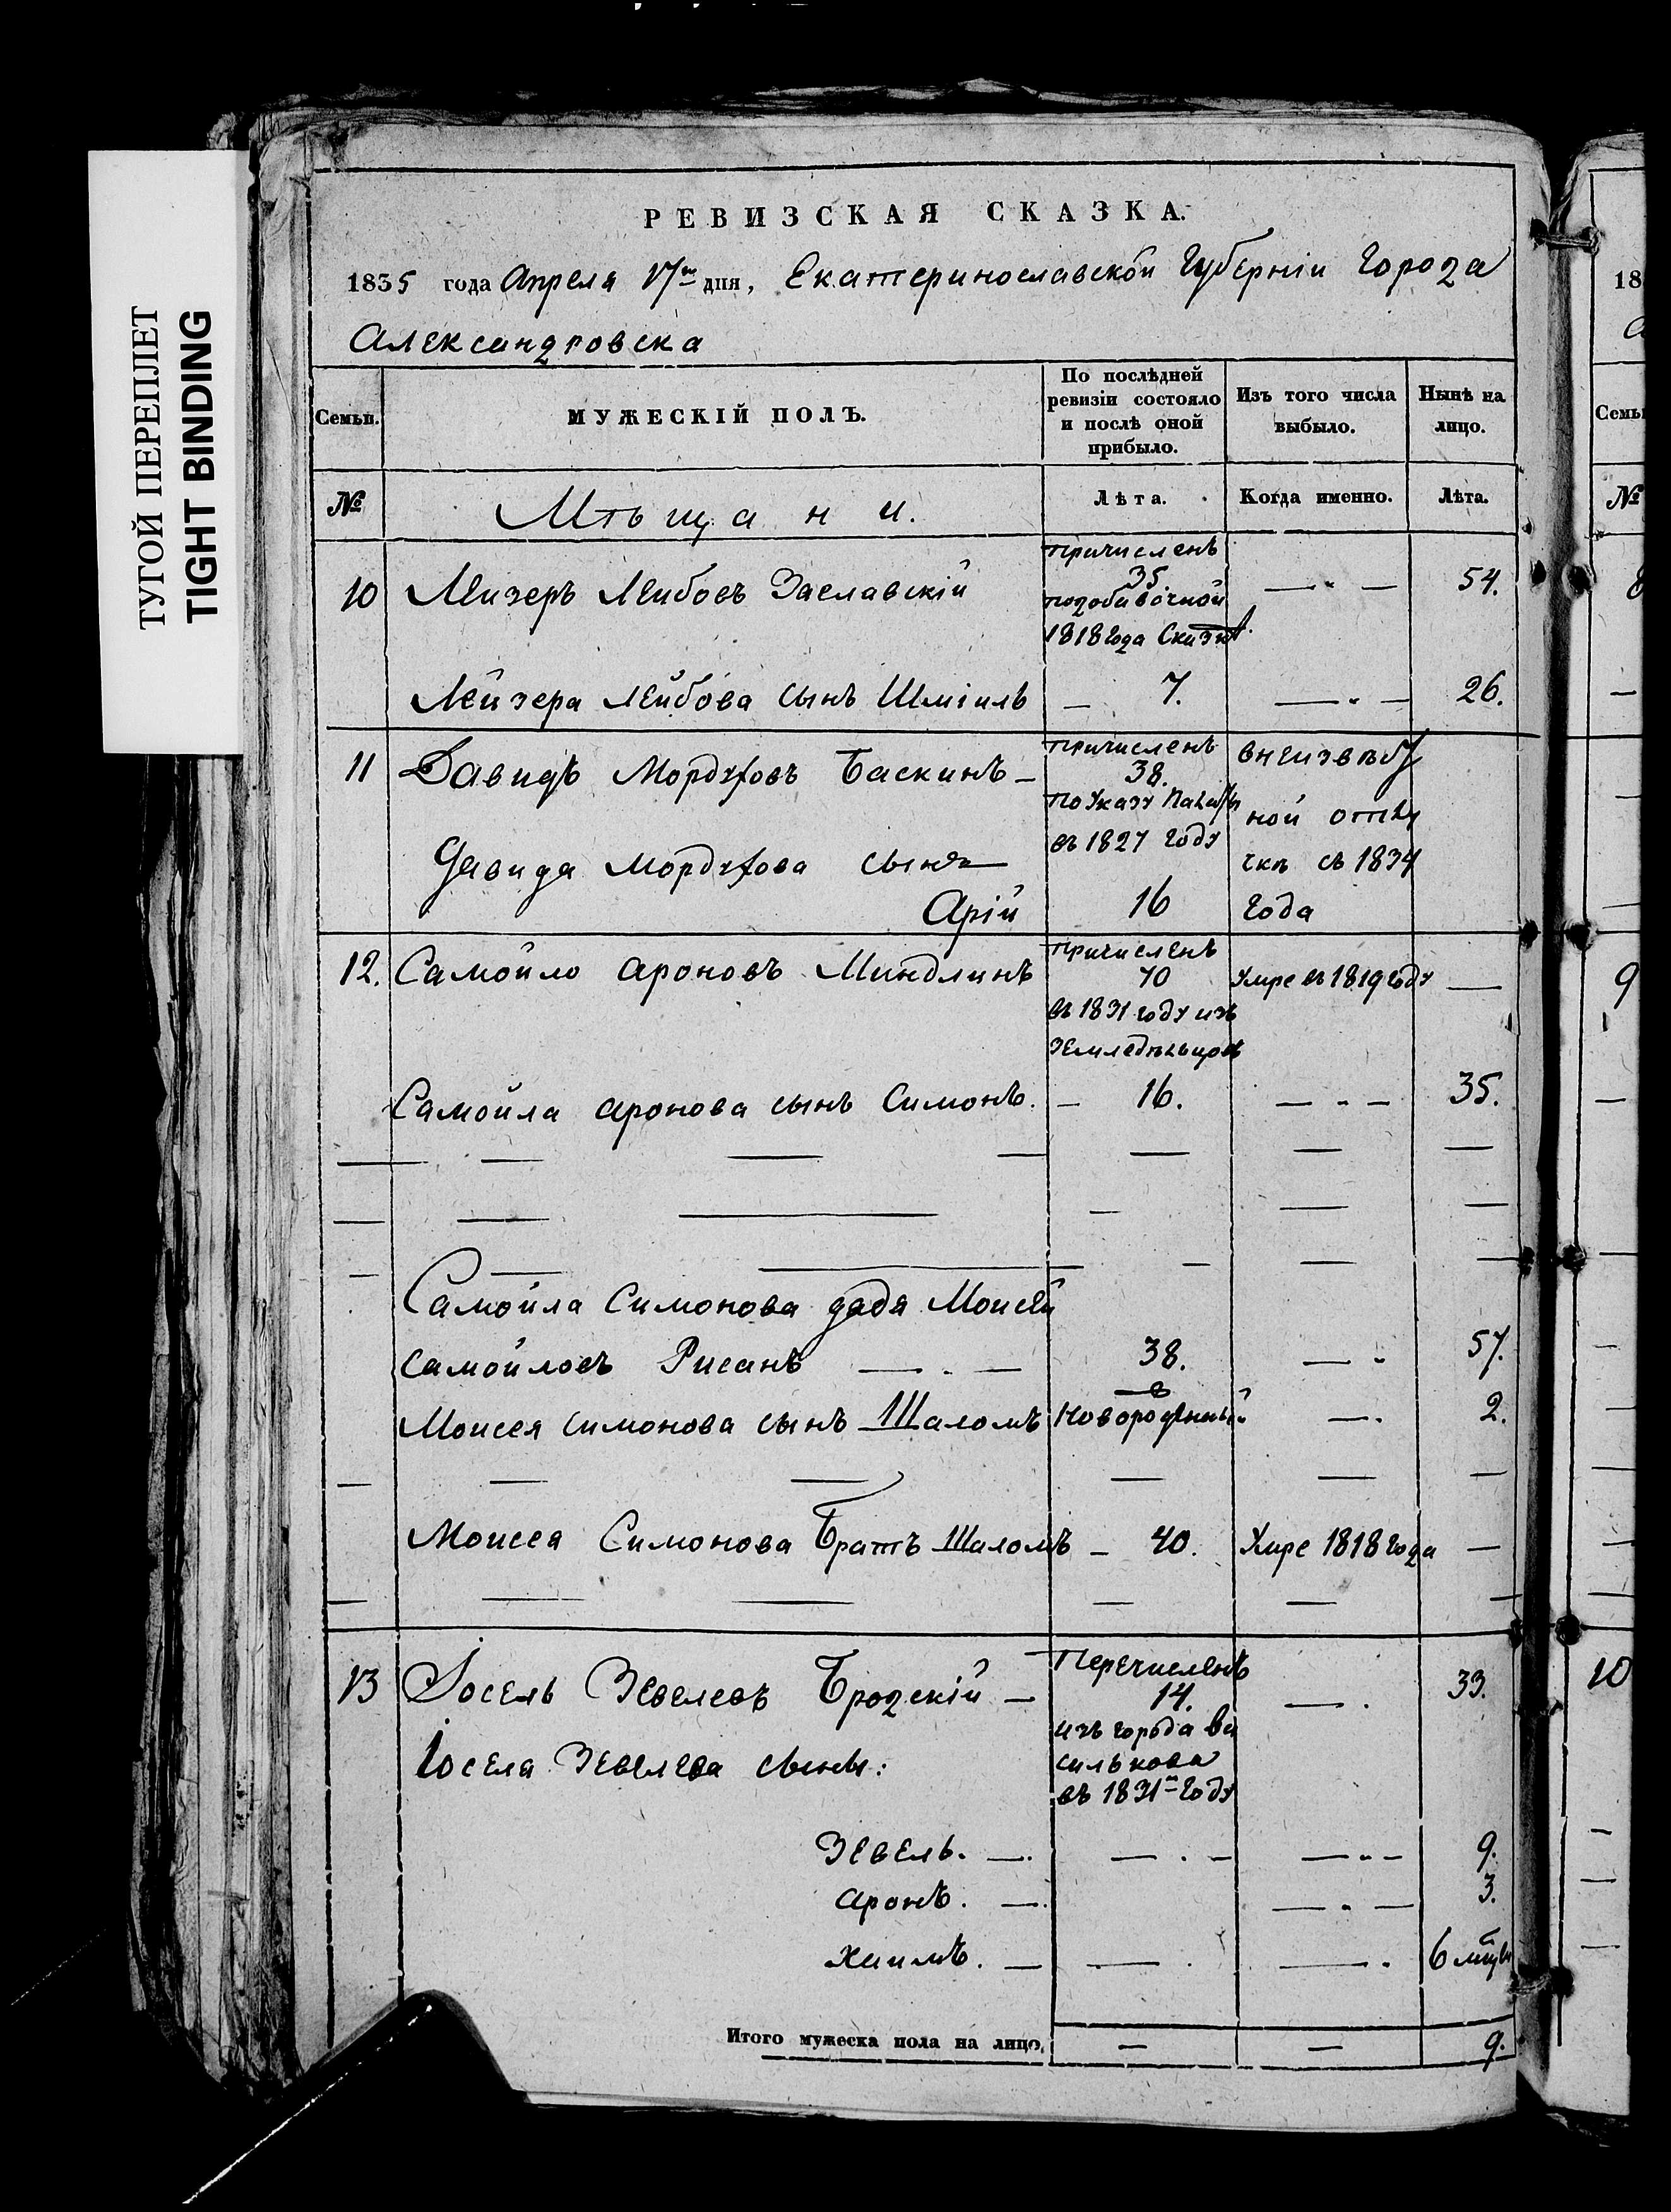 ТУГОЙ ПЕРЕПЛЕТ
TIGHT BINDING
РЕВИЗСКАЯ СКАЗКА.
1835 года Апреля 17го дня, Екатеринославской Губерніи Города
Александровска
Семьи. МУЖЕСКІЙ ПОЛЪ. По послѣдней ревизіи состояло и послѣ оной прибыло. Изъ того числа выбыло. Нынѣ на лицо.
№ Мѣщани. Лѣта. Когда именно. Лѣта.
причисленъ
10 Лейзеръ Лейбовъ Заславскій 35. 54.
подобавочной
1818 года
Лейзера Лейбова сынъ Шміиль 7. 26.
11 Давидъ Мордуховъ Баскинъ причисленъ 38. внеизвѣст
по Указу ной отлу
въ 1827 году
Давида Мордухова сынъ чкѣ съ 1834
Арій 16 года
причисленъ
12. Самойло Ароновъ Миндлинъ 70 Умре въ 1819 году
въ 1831 году изъ
земледѣльцовъ
Самойла Аронова сынъ Симонъ. 16. 35.
Самойла Симонова дядя Моисей
Самойловъ Рисанъ 38. 57.
Моисея Симонова сынъ Шаломъ Новорожденный 2.
Моисея Симонова Братъ Шаломъ 40. Умре 1818 года
Перечисленъ
13 Іосель Зевелевъ Бродскій 14. 33.
изъ города Ва
Іоселя Зевелева сыны: силькова
въ 1831м году
Зевель. 9.
Аронъ. 3.
Хаимъ. 6 мцы
Итого мужеска пола на лицо. 9.
18
Семьи
№
8
9
10